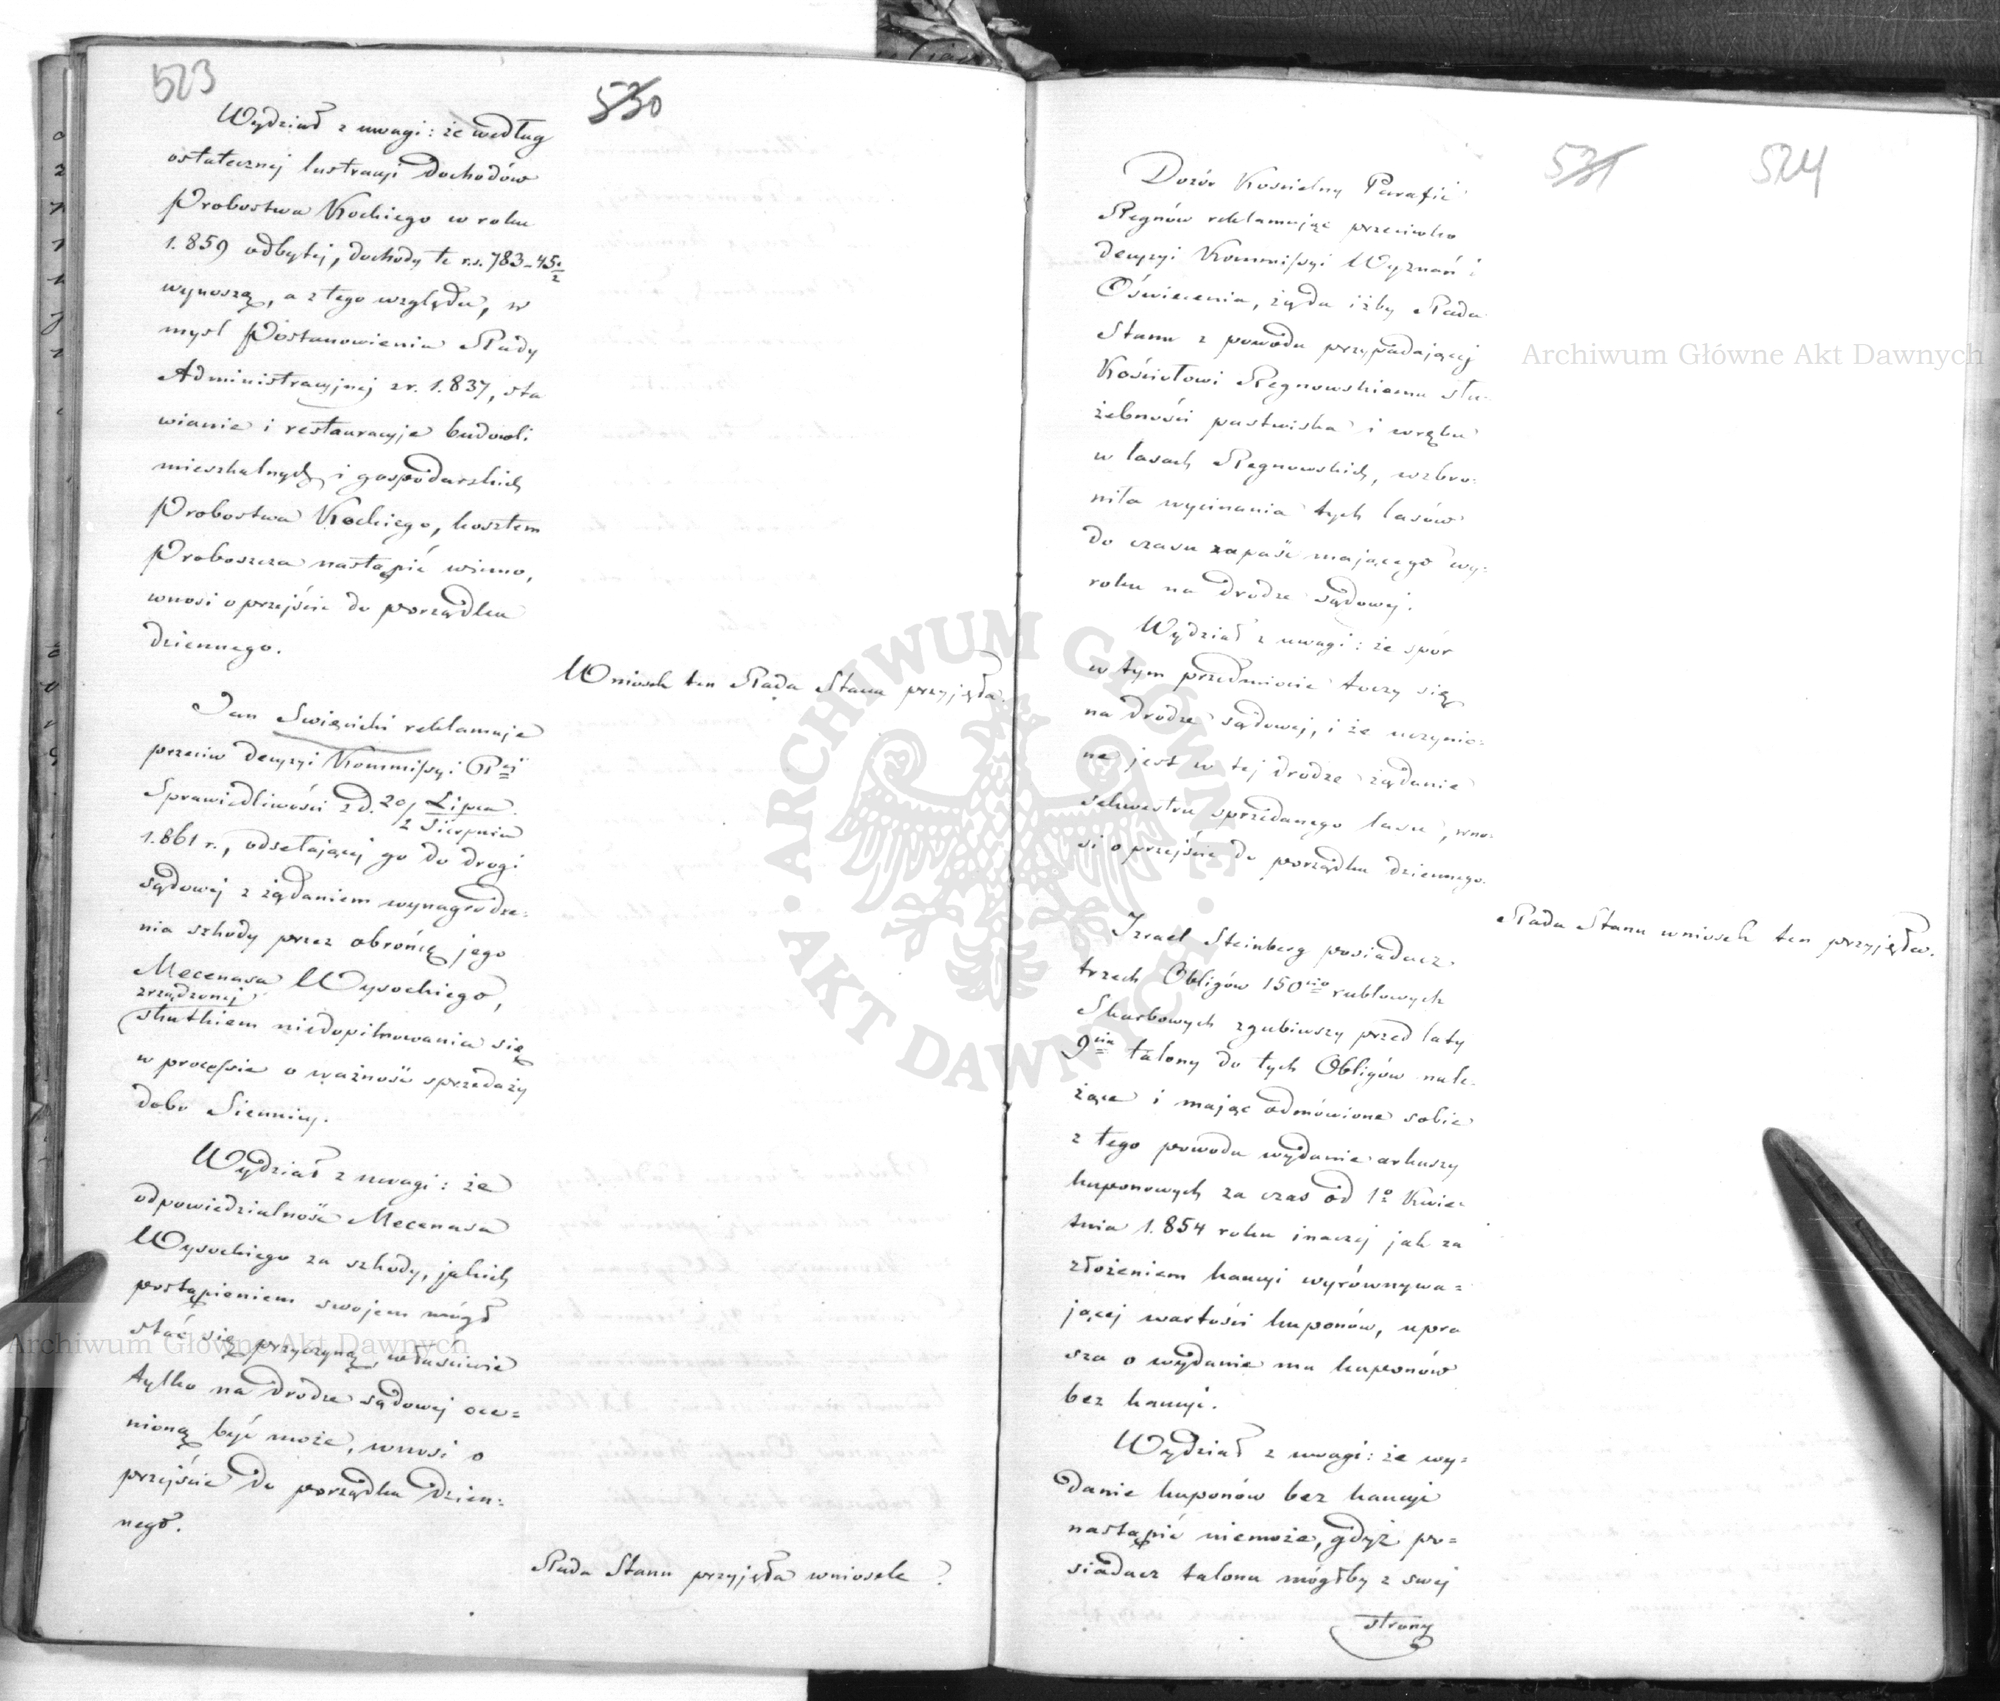 523
530
Wydział z uwagi: że według
ostatecznej lustracyi dochodów
Probostwa Kockiego w roku
1.859 odbytej, dochody te r.s. 783-45½
wynoszą, a z tego względu, w
mysl Postanowienia Rady
Administracyjnej z r. 1.837, sta
wianie i restauracyje budowli
mieszkalnych i gospodarskich
Probostwa Kockiego, kosztem
Proboszcza nastąpić winno,
wnosi o przejście do porządku
dziennego.
Wniosek ten Rada Stanu przyjęła.
Jan Swięcicki reklamuje
przeciw decyzyi Kommissyi Rej
Sprawiedliwości z d. 20/2 Lipca/Sierpnia
1.861 r., odsełającej go do drogi
sądowej z żądaniem wynagrodze=
nia szkody przez obrońcę jego
Mecenasa Wysockiego,
zrządzonej
skutkiem niedopilnowania się
w processie o ważność sprzedaży
dobr Siennicy.
Wydział z uwagi: że
odpowiedzialność Mecenasa
Wysockiego za szkody, jakich
postąpieniem swojem mógł
stać się przyczyną, właściwie
tylko na drodze sądowej oce=
nioną być może, wnosi o
przejście do porządku dzien=
nego.
Rada Stanu przyjęła wniosek.
531
524
Dozór Kościelny Parafii
Regnów reklamując przeciwko
decyzyi Kommissyi Wyznań i
Oświecenia, żąda iżby Rada
Stanu z powodu przypadającej
Kościołowi Regnowskiemu słu-
żebności pastwiska i wrębu
w lasach Regnowskich, wzbro-
niła wycinania tych lasów
do czasu zapaść mającego wy-
roku na drodze sądowej.
Wydział z uwagi: że spór
w tym przedmiocie toczy się
na drodze sądowej, i że uczynio-
ne jest w tej drodze żądanie
sekwestru sprzedanego lasu, wno-
si o przejście do porządku dziennego.
Rada Stanu wniosek ten przyjęła.
Izrael Steinberg posiadacz
trzech Obligów 150cio rublowych
Skarbowych zgubiwszy przed laty
9cia talony do tych Obligów nale-
żące i mając odmówione sobie
z tego powodu wydanie arkuszy
kuponowych za czas od 1o Kwie-
tnia 1.854 roku inaczej jak za
złożeniem kaucyi wyrównywa=
jącej wartości kuponów, upra
sza o wydanie mu kuponów
bez kaucyi.
Wydział z uwagi: że wy=
danie kuponów bez kaucyi
nastąpić niemoże, gdyż po=
siadacz talonu mógłby z swej
strony
Archiwum Główne Akt Dawnych
Archiwum Główne Akt Dawnych
ARCHIWUM GŁÓWNE
AKT DAWNYCH